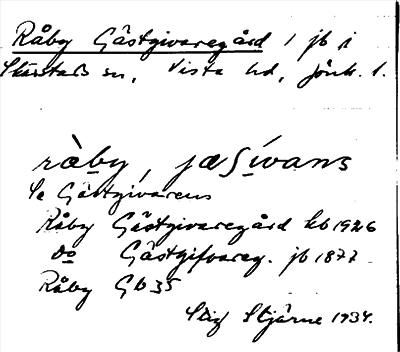 Råby Gästgivaregård 1 jb i
Skärstads sn, Vista hd, Jönk. l.
rà̀by, jæʃívans
Se Gästgivarens
Råby Gästgivaregård kb 1926
do Gästgifvareg. jb 1877
Råby GB 35
Stig Stjärne 1934.